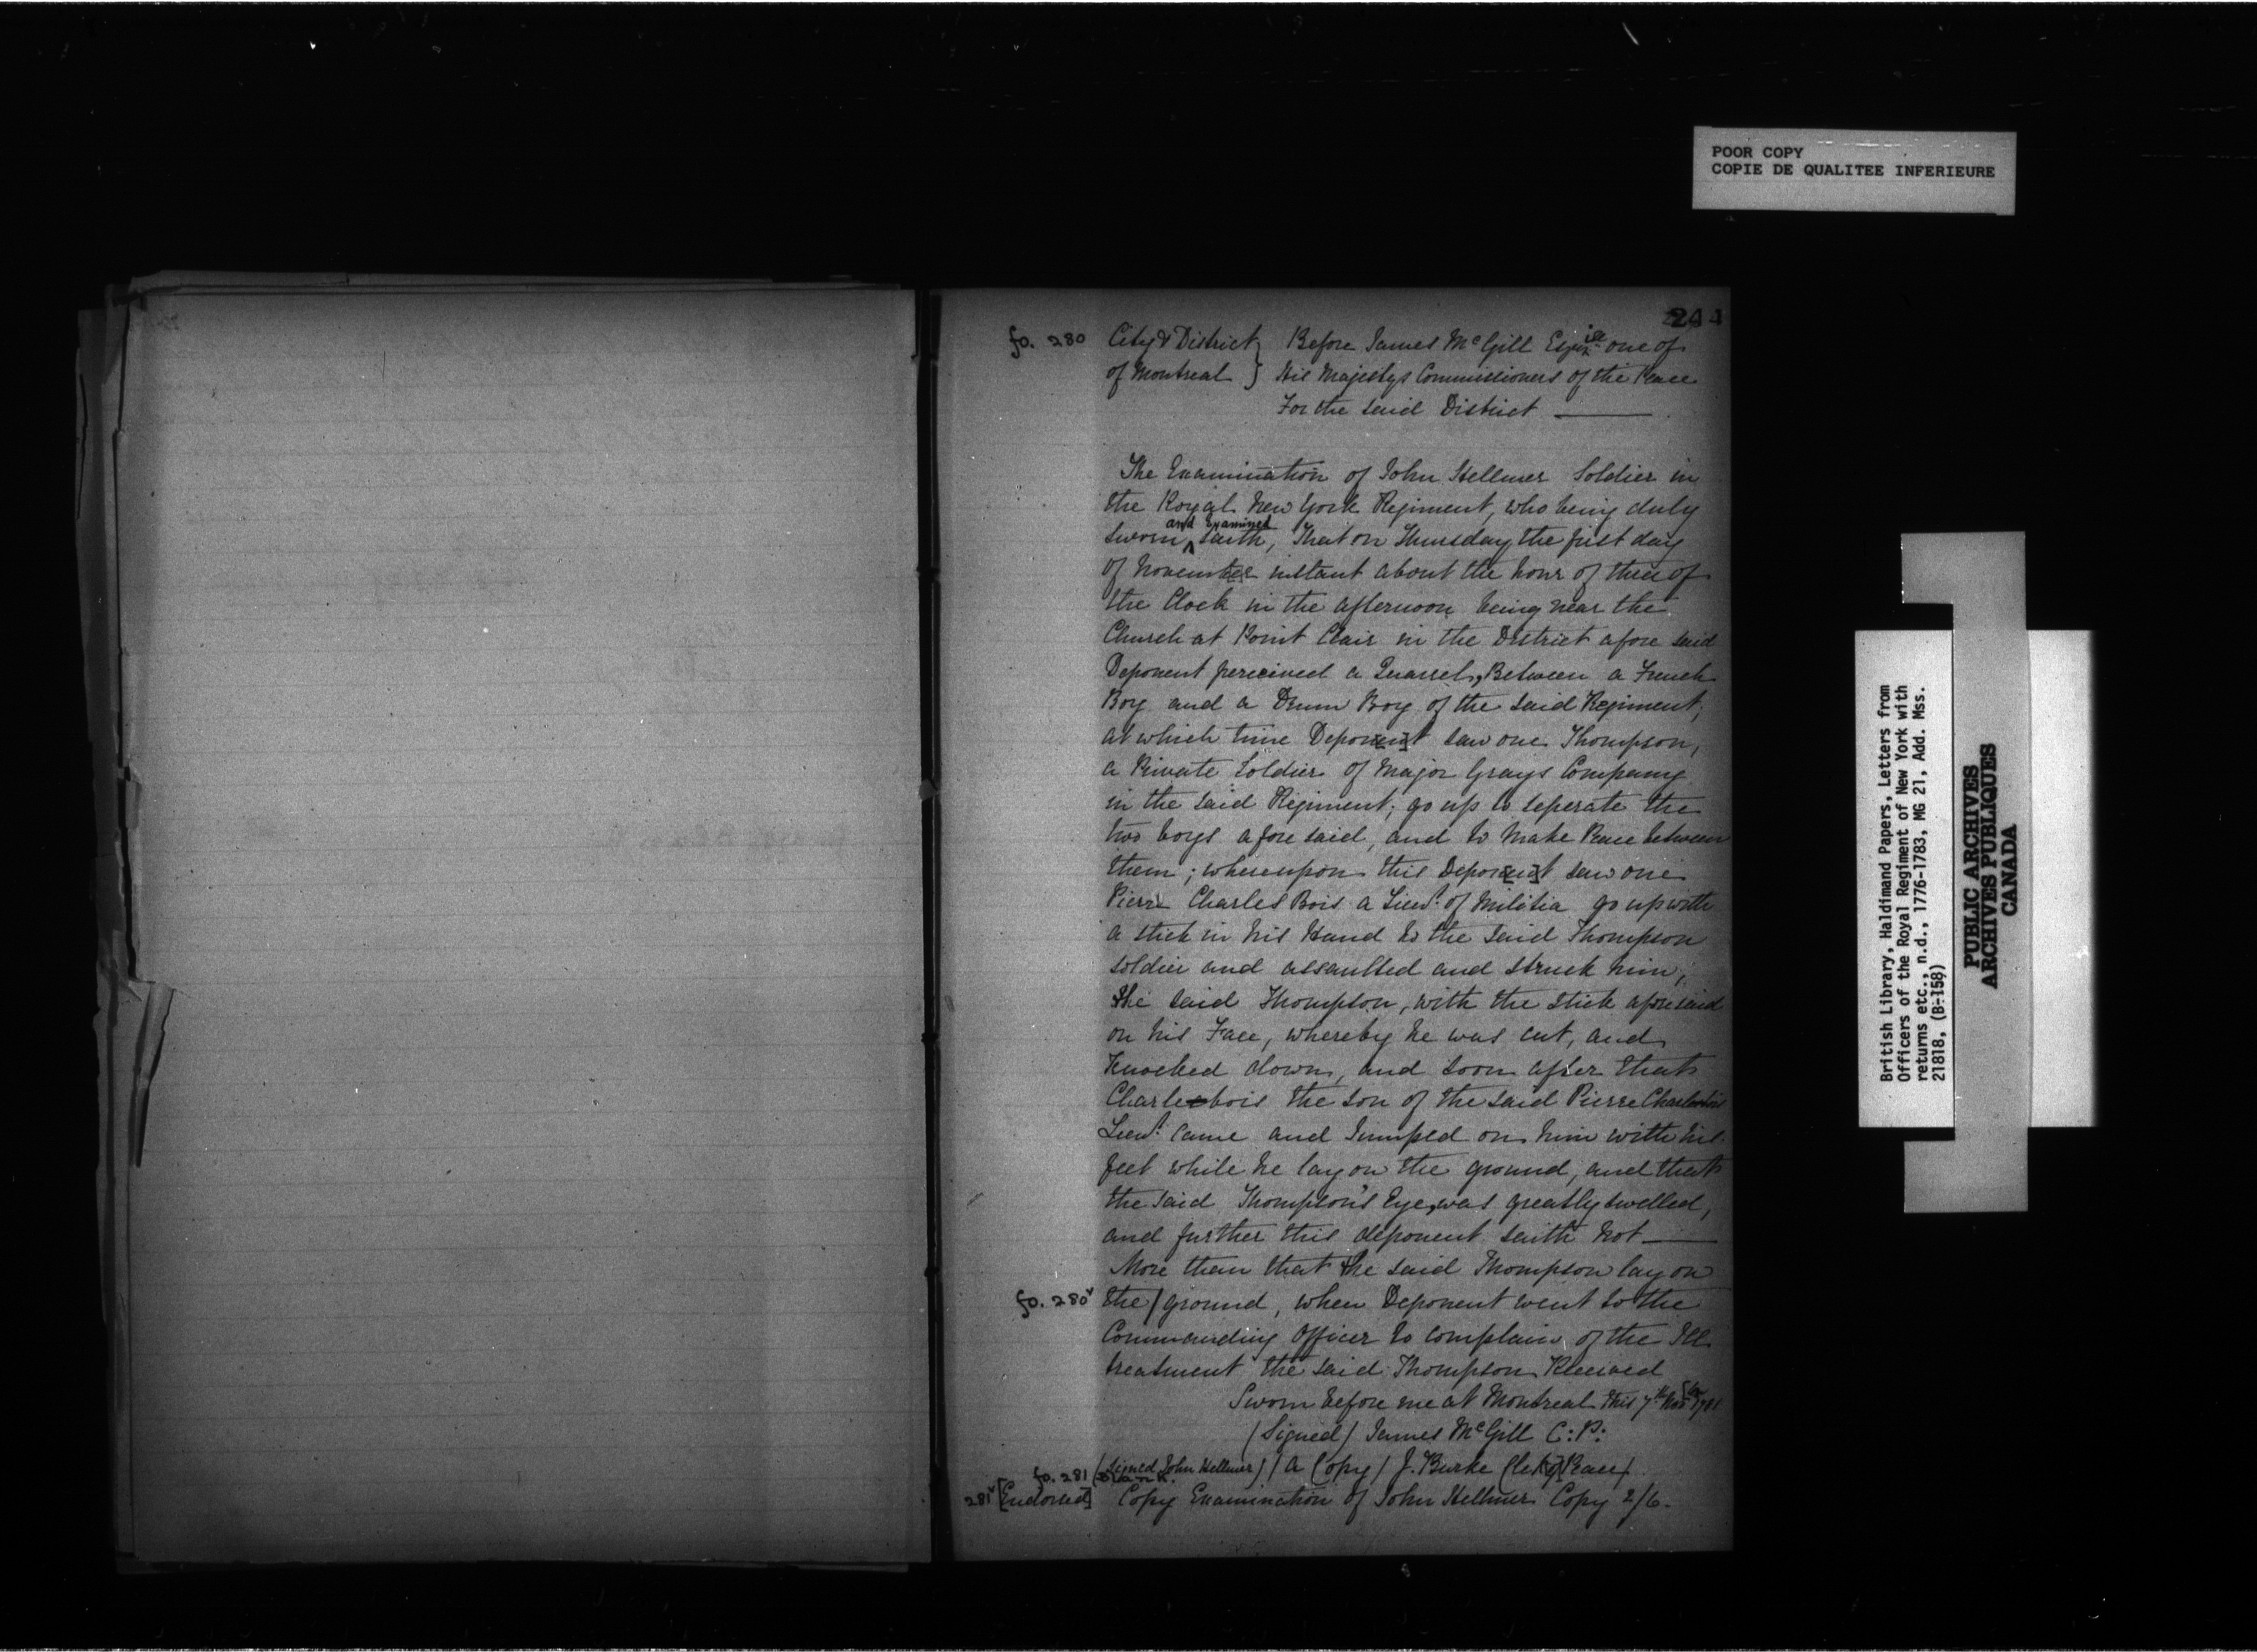 POOR COPY
COPIE DE QUALITEE INFERIEURE
244
fo. 280 City & District } Before James McGill Esquire one of
of Montreal } His Majestys Commissioners of the Peace
For the said District
The Examination of John Hellmer Soldier in
the Royal New York Regiment, who being duly
sworn and Examined saith, That on Thursday the first day
of November instant about the hour of three of
the Clock in the afternoon being near the
Church at Point Clair in the District afore said
Deponent perceived a Quarrel, Between a French
Boy and a Drum Boy of the said Regiment;
at which time Deponent saw one Thompson,
a Private Soldier of Major Grays Company
in the said Regiment; go up to seperate the
two boys afore said, and to make Peace between
them; whereupon this Deponent saw one
Pierre Charles Bois a Lieut. of Militia go up with
a stick in his Hand to the said Thompson
soldier and assaulted and struck him;
the said Thompson, with the stick aforesaid
on his Face, whereby he was cut, and
Knocked down, and soon after that
Charlesbois the son of the said Pierre Charlesbois
Lieut. came and Jumped on him with his
feet while he lay on the ground, and that
the said Thompson's Eye, was greatly swelled,
and further this deponent saith not
More than that the said Thompson lay on
fo. 280v the / ground, when Deponent went to the
Commanding Officer to complain of the Ill
treatment the said Thompson Received
Sworn before me at Montreal this 7th Novr 1781
(Signed) James McGill C:P:
(Signed John Hellmer) (A Copy) J. Burke Cler[k of] Peace)
fo. 281 Blank.
281v [Endorsed] Copy Examination of John Hellmer Copy 2/6.
British Library, Haldimand Papers, Letters from
Officers of the Royal Regiment of New York with
returns etc., n.d., 1776-1783, MG 21, Add. Mss.
21818, (B-158)
PUBLIC ARCHIVES
ARCHIVES PUBLIQUES
CANADA